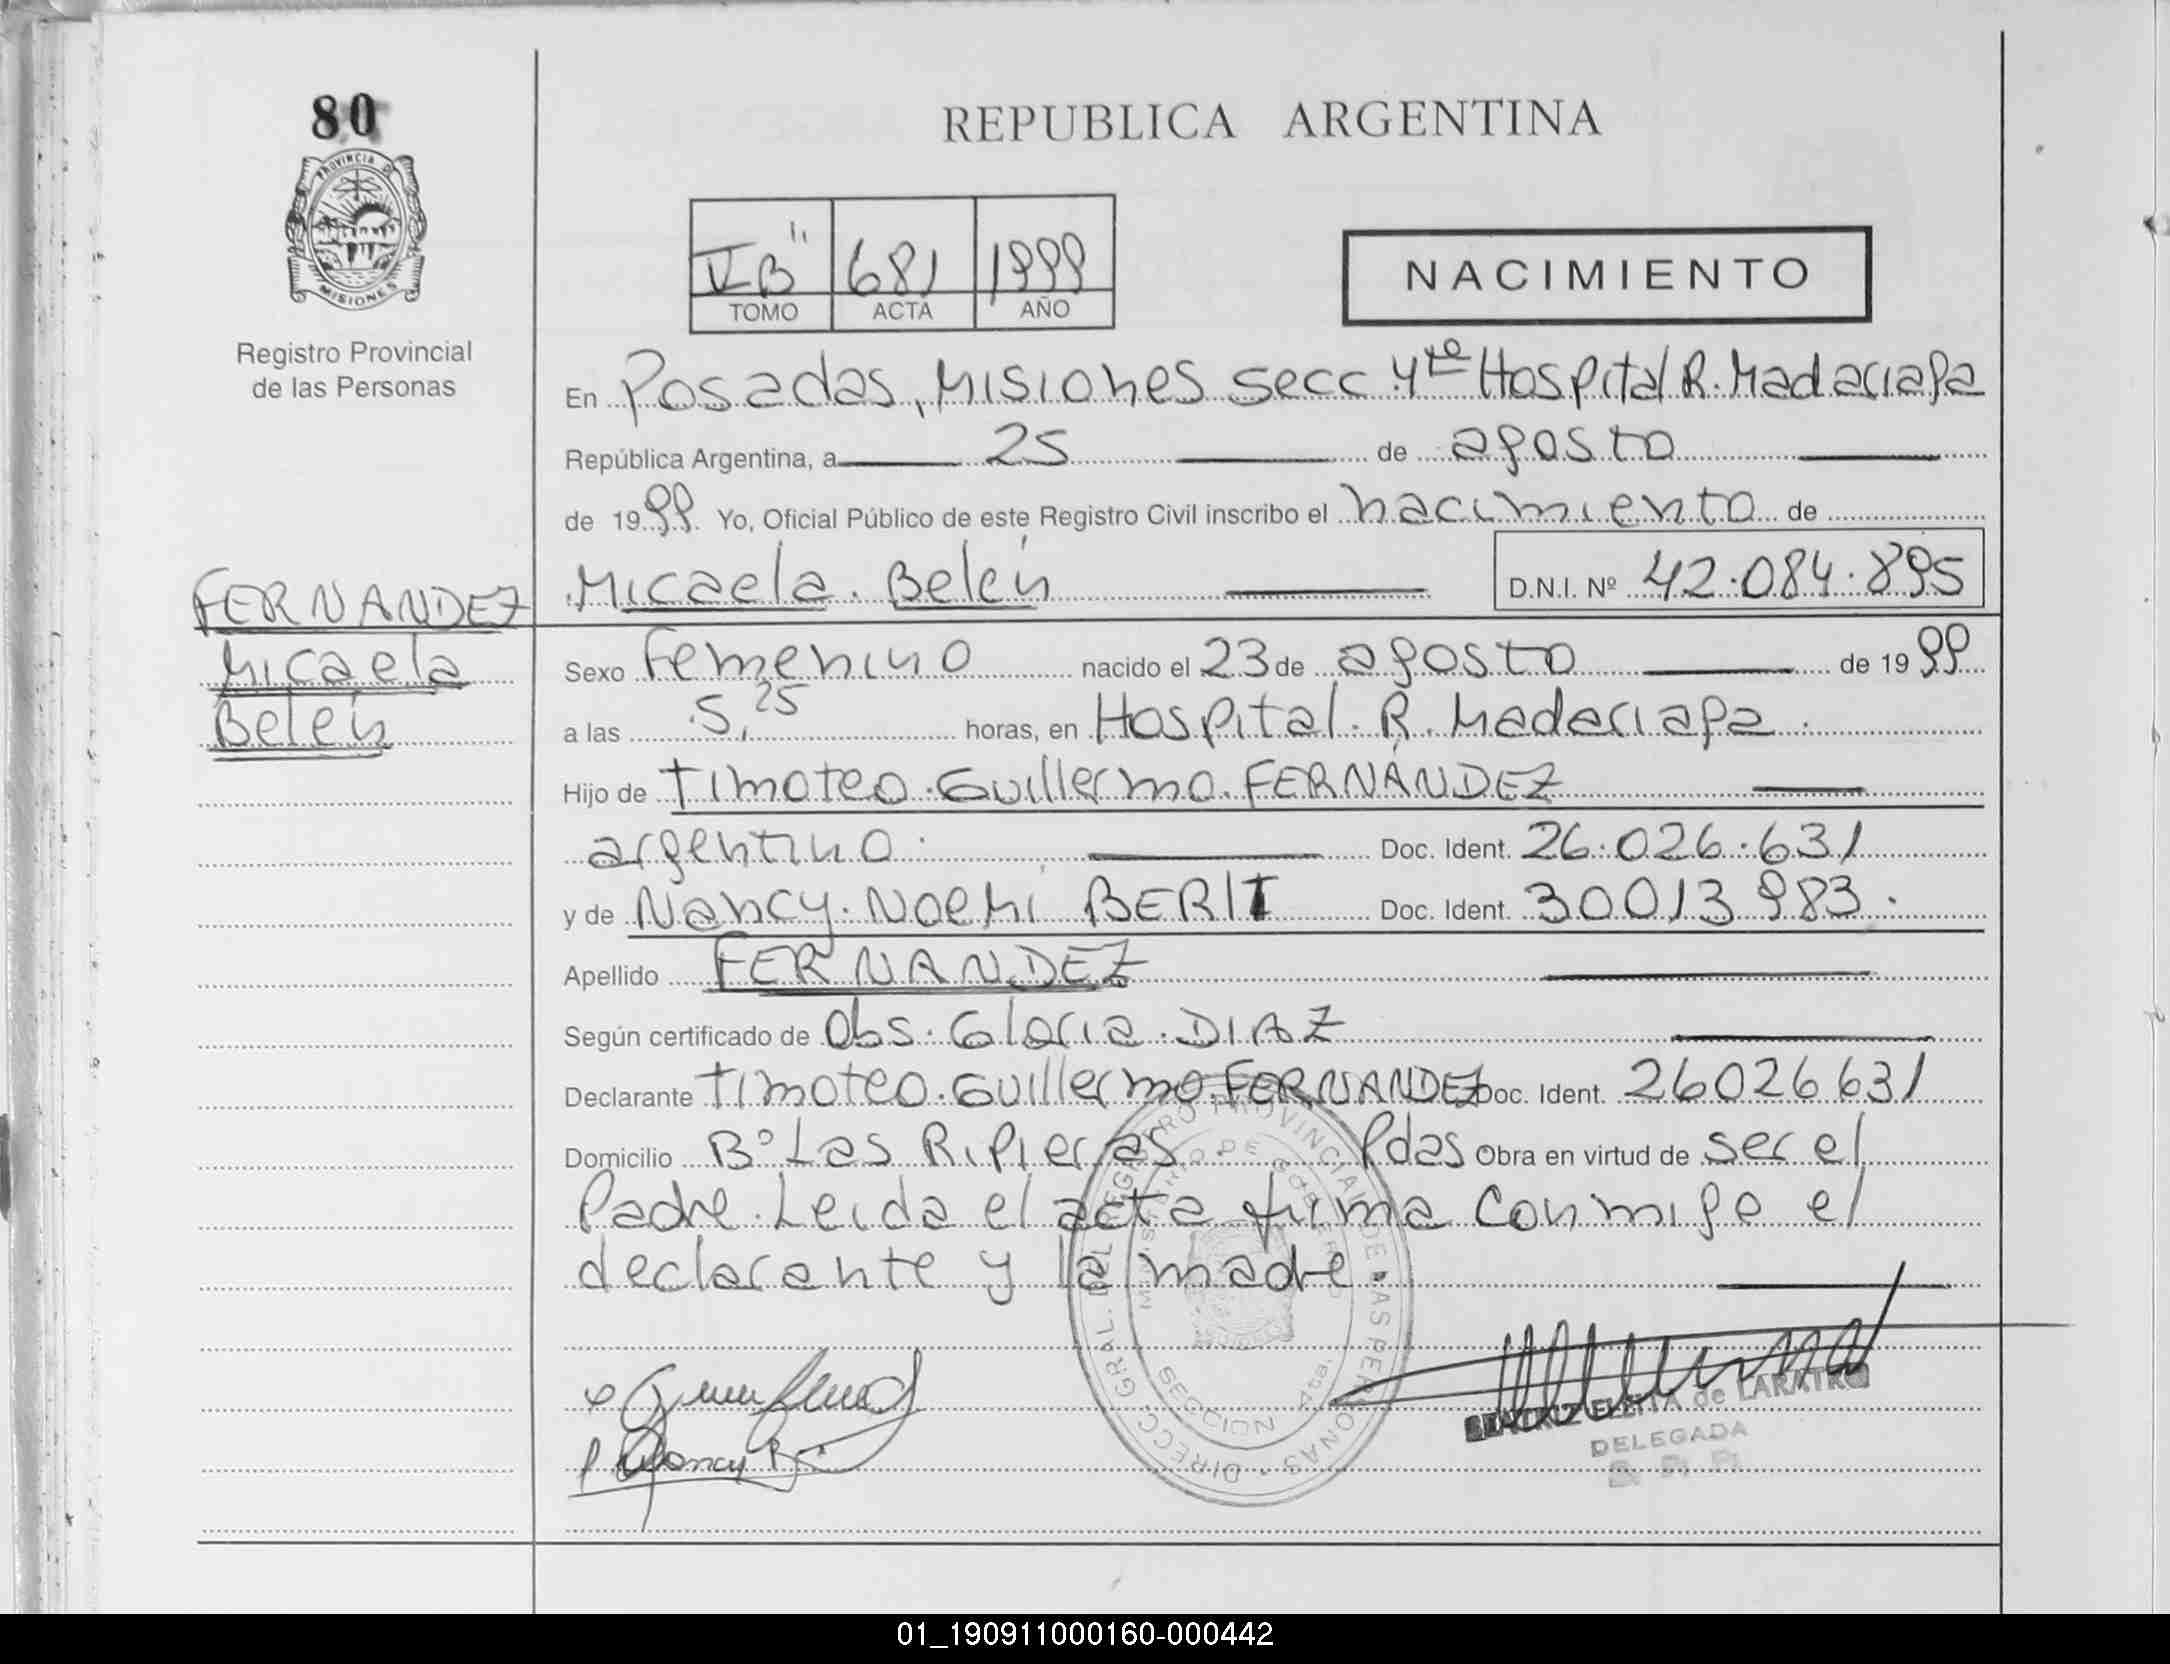 80
PROVINCIA DE
MISIONES
Registro Provincial
de las Personas
REPUBLICA ARGENTINA
681 1999
TOMO ACTA AÑO
NACIMIENTO
En Posadas, Misiones secc 4ta Hospital R. Madariaga
República Argentina, a 25 de agosto
de 1999 Yo, Oficial Público de este Registro Civil inscribo el nacimiento de
Micaela. Belén D.N.I. Nº 42.084.895
FERNANDEZ
Micaela
Belén
Sexo Femenino nacido el 23 de agosto de 1999
a las 5,25 horas, en Hospital. R. Madariaga.
Hijo de Timoteo. Guillermo. FERNÁNDEZ
argentino. Doc. Ident. 26.026.631
y de Nancy. Noemí BERIT Doc. Ident. 30013983.
Apellido FERNANDEZ
Según certificado de Obs. Gloria. DIAZ
Declarante Timoteo. Guillermo. FERNANDEZ Doc. Ident. 26026631
Domicilio Bº Las Ripieras Pdas Obra en virtud de ser el
Padre. Leida el acta firma conmigo el
declarante y la madre.
DIRECC. GRAL. DEL REGISTRO PROVINCIAL DE LAS PERSONAS
MINISTERIO DE GOBIERNO
SECCION 4ta.
Nancy
BEATRIZ de LARATRO
DELEGADA
01_190911000160-000442